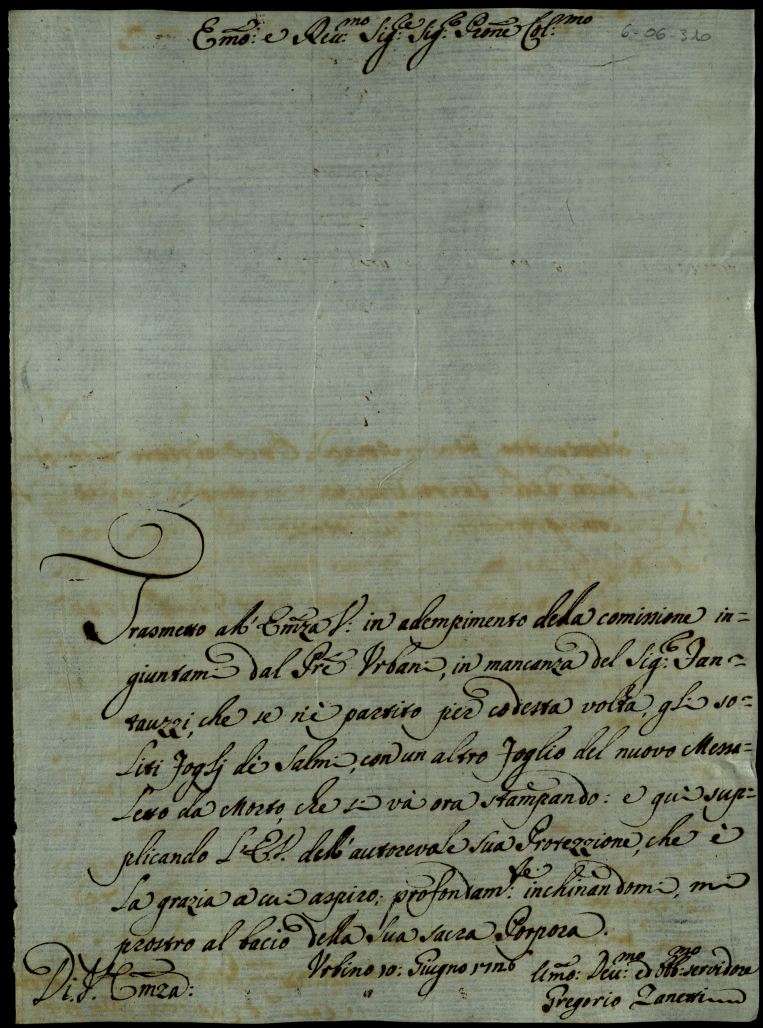 Em̃o: e Reu:mo Sig:re Sig:re Prone Col:mo
6-06-320
Trasmetto all'Em̃za V: in adempimento della comissione in=
giuntami dal Pre Urbani, in mancanza del Sig:r Fan=
tauzzi, che se n'è partito per codesta volta, gli so=
liti Foglj de Salmi, con un altro Foglio del nuovo Messa=
letto da Morto, che si và ora stampando: e quì sup=
plicando L'E.V. dell'autorevole sua Protezzione, che è
la grazia a cui aspiro, profondam:te inchinandomi, mi
prostro al bacio della Sua sacra Porpora.
Di V: Em̃za:
Urbino 10: Giugno
Um̃o: Deu:mo ed obb:mo servidore
Gregorio Zanetti